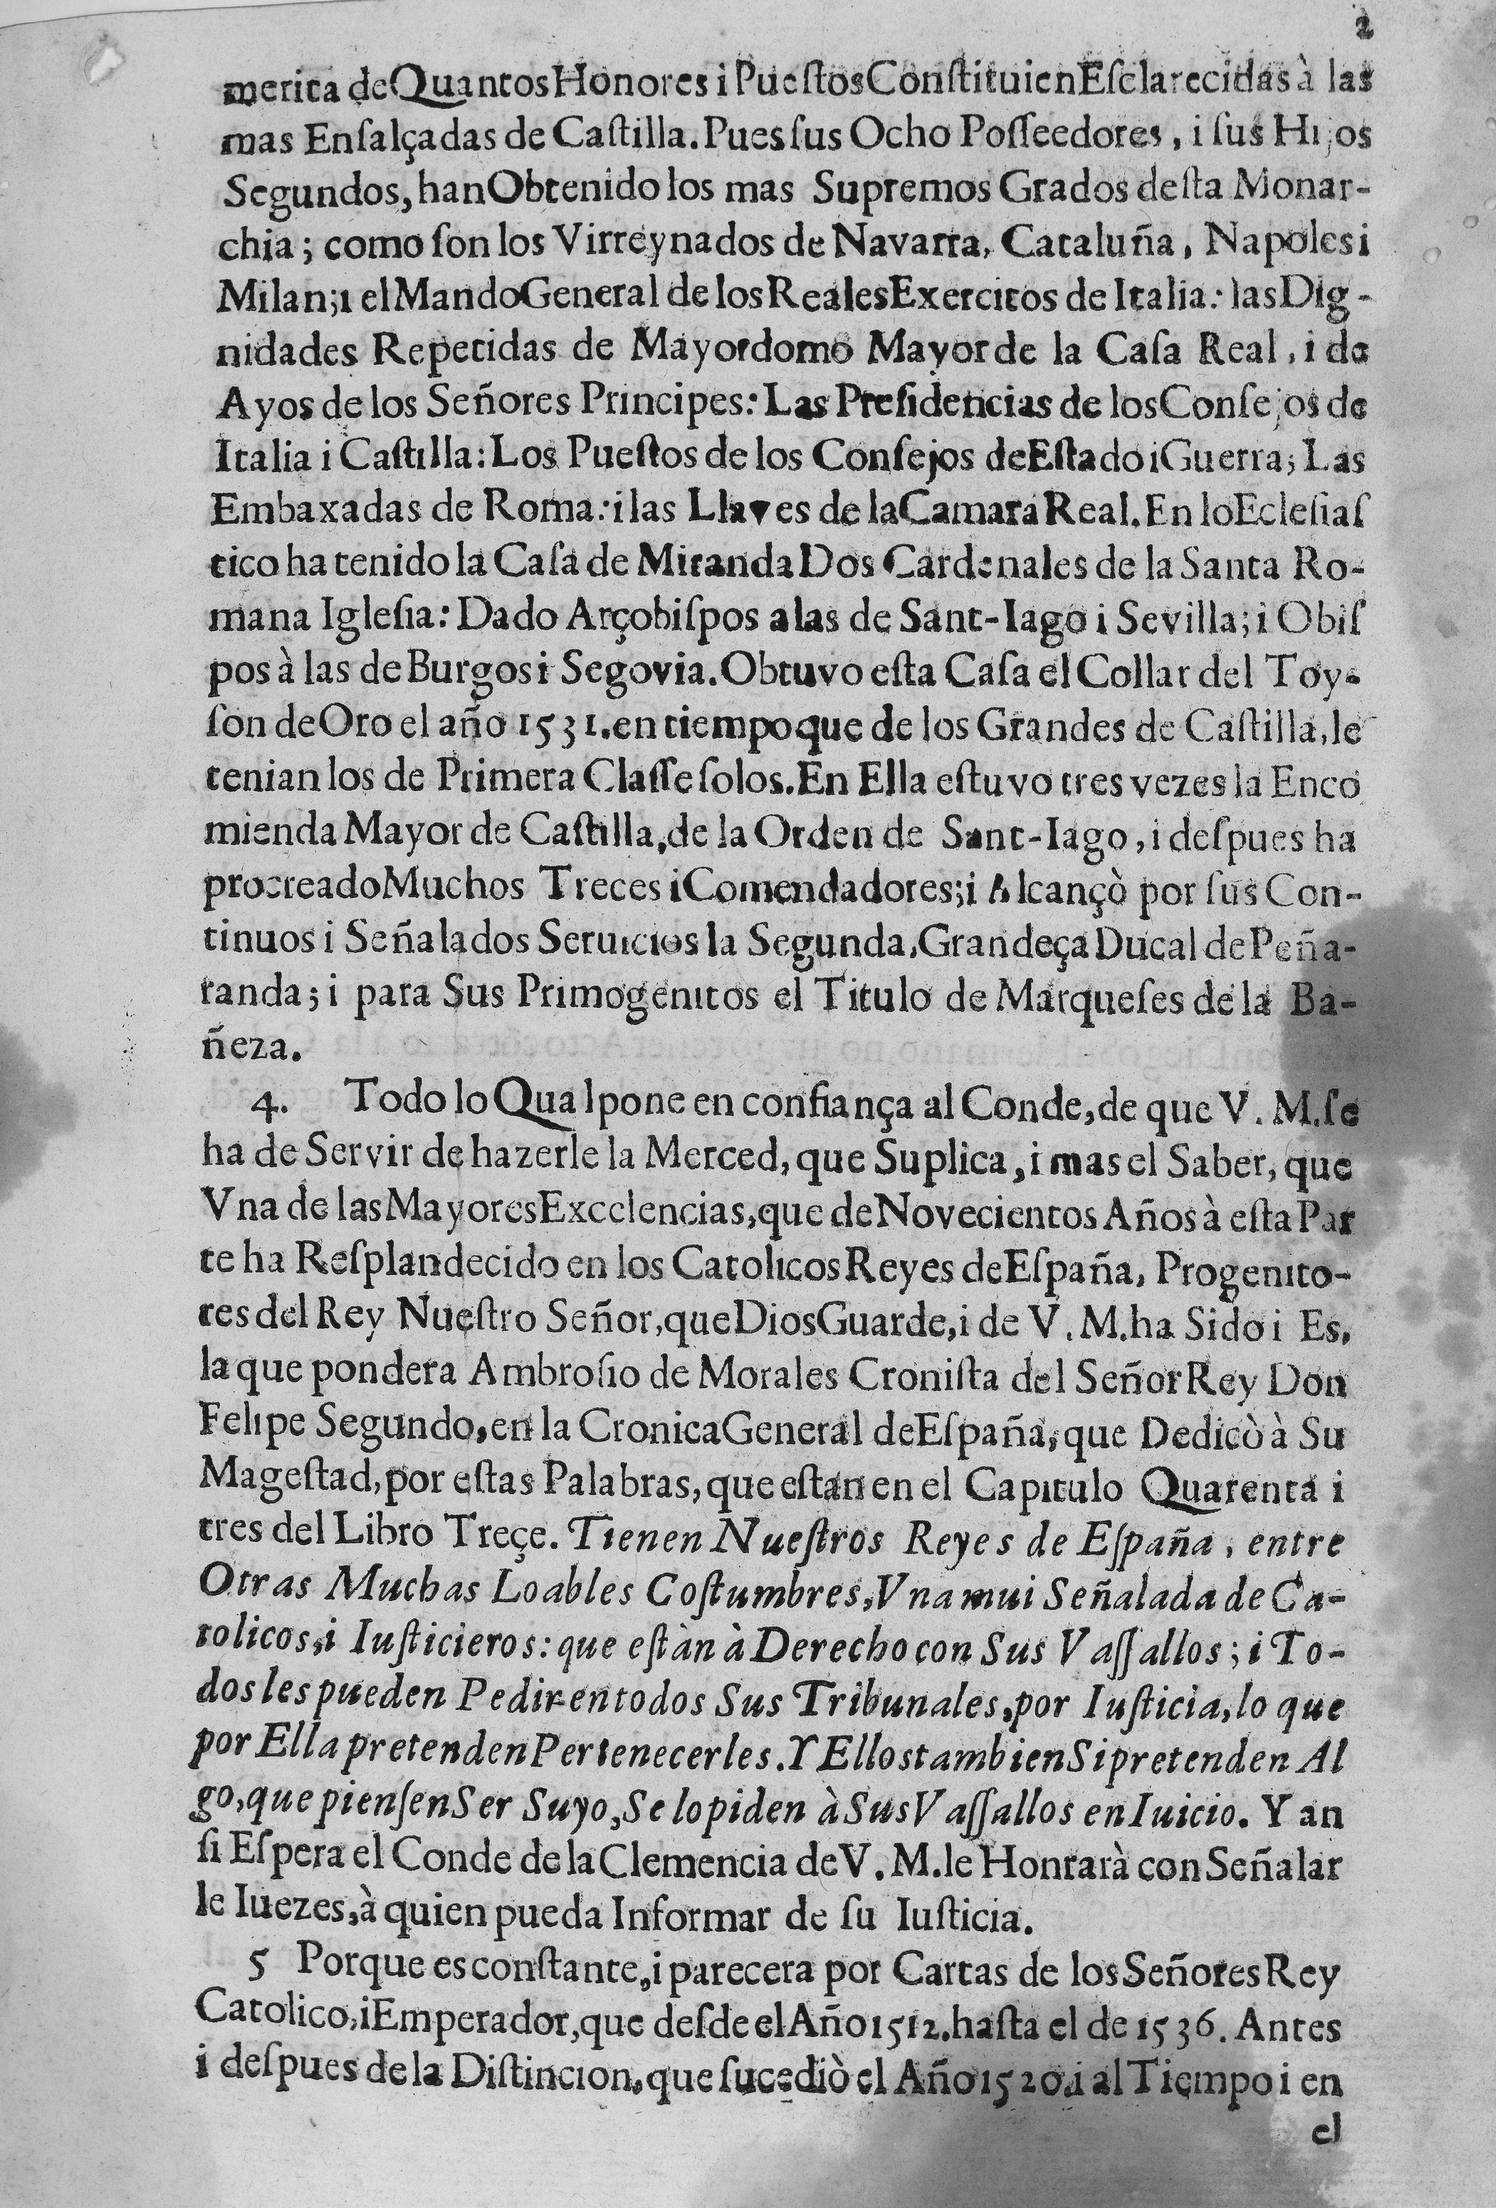 2
merita de Quantos Honores i Puestos Constituien Esclarecidas à las
mas Ensalçadas de Castilla. Pues sus Ocho Posseedores, i sus Hijos
Segundos, han Obtenido los mas Supremos Grados desta Monar-
chia; como son los Virreynados de Navarra, Cataluña, Napoles i
Milan; i el Mando General de los Reales Exercitos de Italia: las Dig-
nidades Repetidas de Mayordomo Mayor de la Casa Real, i de
Ayos de los Señores Principes: Las Presidencias de los Consejos de
Italia i Castilla: Los Puestos de los Consejos de Estado i Guerra; Las
Embaxadas de Roma: i las Llaves de la Camara Real. En lo Eclesias
tico ha tenido la Casa de Miranda Dos Cardenales de la Santa Ro-
mana Iglesia: Dado Arçobispos a las de Sant-Iago i Sevilla; i Obis
pos à las de Burgos i Segovia. Obtuvo esta Casa el Collar del Toy-
son de Oro el año 1531. en tiempo que de los Grandes de Castilla, le
tenian los de Primera Classe solos. En Ella estuvo tres vezes la Enco
mienda Mayor de Castilla, de la Orden de Sant-Iago, i despues ha
procreado Muchos Treces i Comendadores; i Alcançò por sus Con-
tinuos i Señalados Seruicios la Segunda, Grandeça Ducal de Peña-
randa; i para Sus Primogenitos el Titulo de Marqueses de la Ba-
ñeza.
4. Todo lo Qual pone en confiança al Conde, de que V. M. se
ha de Servir de hazerle la Merced, que Suplica, i mas el Saber, que
Vna de las Mayores Excelencias, que de Novecientos Años à esta Par
te ha Resplandecido en los Catolicos Reyes de España, Progenito-
res del Rey Nuestro Señor, que Dios Guarde, i de V. M. ha Sido i Es,
la que pondera Ambrosio de Morales Cronista del Señor Rey Don
Felipe Segundo, en la Cronica General de España, que Dedicò à Su
Magestad, por estas Palabras, que estan en el Capitulo Quarenta i
tres del Libro Treçe. Tienen Nuestros Reyes de España, entre
Otras Muchas Loables Costumbres, Vna mui Señalada de Ca-
tolicos, i Iusticieros: que estàn à Derecho con Sus Vassallos; i To-
dos les pueden Pedir en todos Sus Tribunales, por Iusticia, lo que
por Ella pretenden Pertenecerles. Y Ellos tambien Si pretenden Al
go, que piensen Ser Suyo, Se lo piden à Sus Vassallos en Iuicio. Y an
si Espera el Conde de la Clemencia de V. M. le Honrarà con Señalar
le Iuezes, à quien pueda Informar de su Iusticia.
5 Porque es constante, i parecera por Cartas de los Señores Rey
Catolico, i Emperador, que desde el Año 1512. hasta el de 1536. Antes
i despues de la Distincion, que sucediò el Año 1520. i al Tiempo i en
el